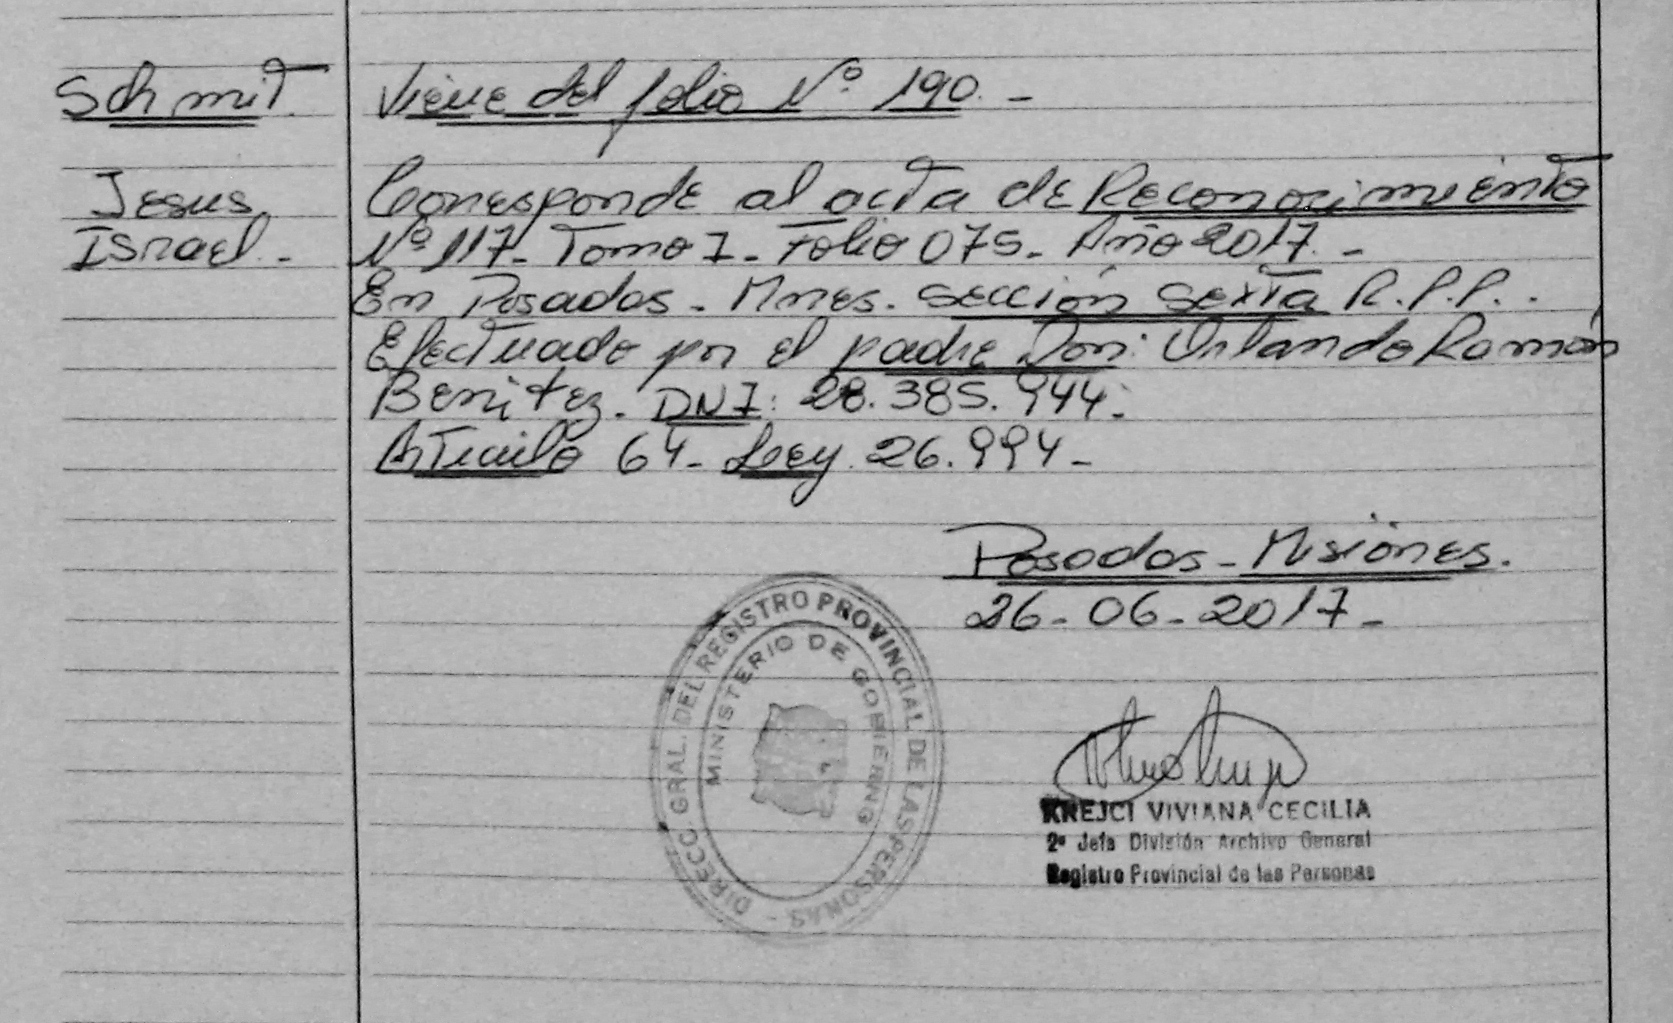 Schmit.
Viene del folio Nº 190. -
Jesus
Israel. -
Corresponde al acta de Reconocimiento
Nº 117- Tomo I- Folio 075- Año 2017. -
En Posadas - Mnes. sección Sexta R.P.P. .
Efectuado por el padre Don: Orlando Ramón
Benitez. DNI: 28.385.944.
Articulo 64- Ley 26.994-
Posadas - Misiones.
26-06-2017-
DIRECC. GRAL. DEL REGISTRO PROVINCIAL DE LAS PERSONAS -
MINISTERIO DE GOBIERNO
KREJCI VIVIANA CECILIA
2ª Jefa División Archivo General
Registro Provincial de las Personas